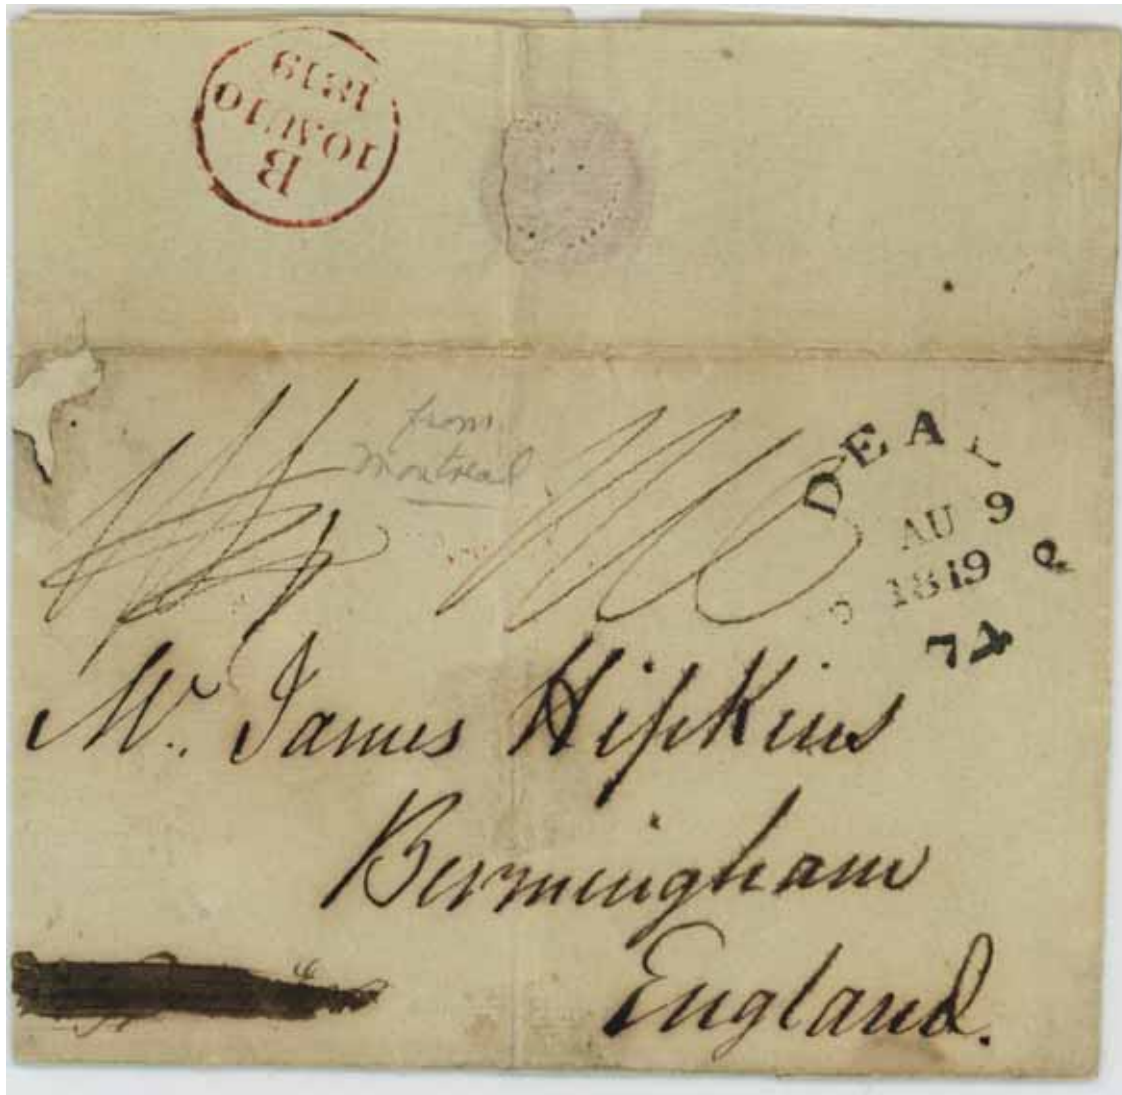 B
10 AU 10
1819
from
Montreal
DEAL
AU 9
1819
74
Mr. James Hipkins
Birmingham
England.